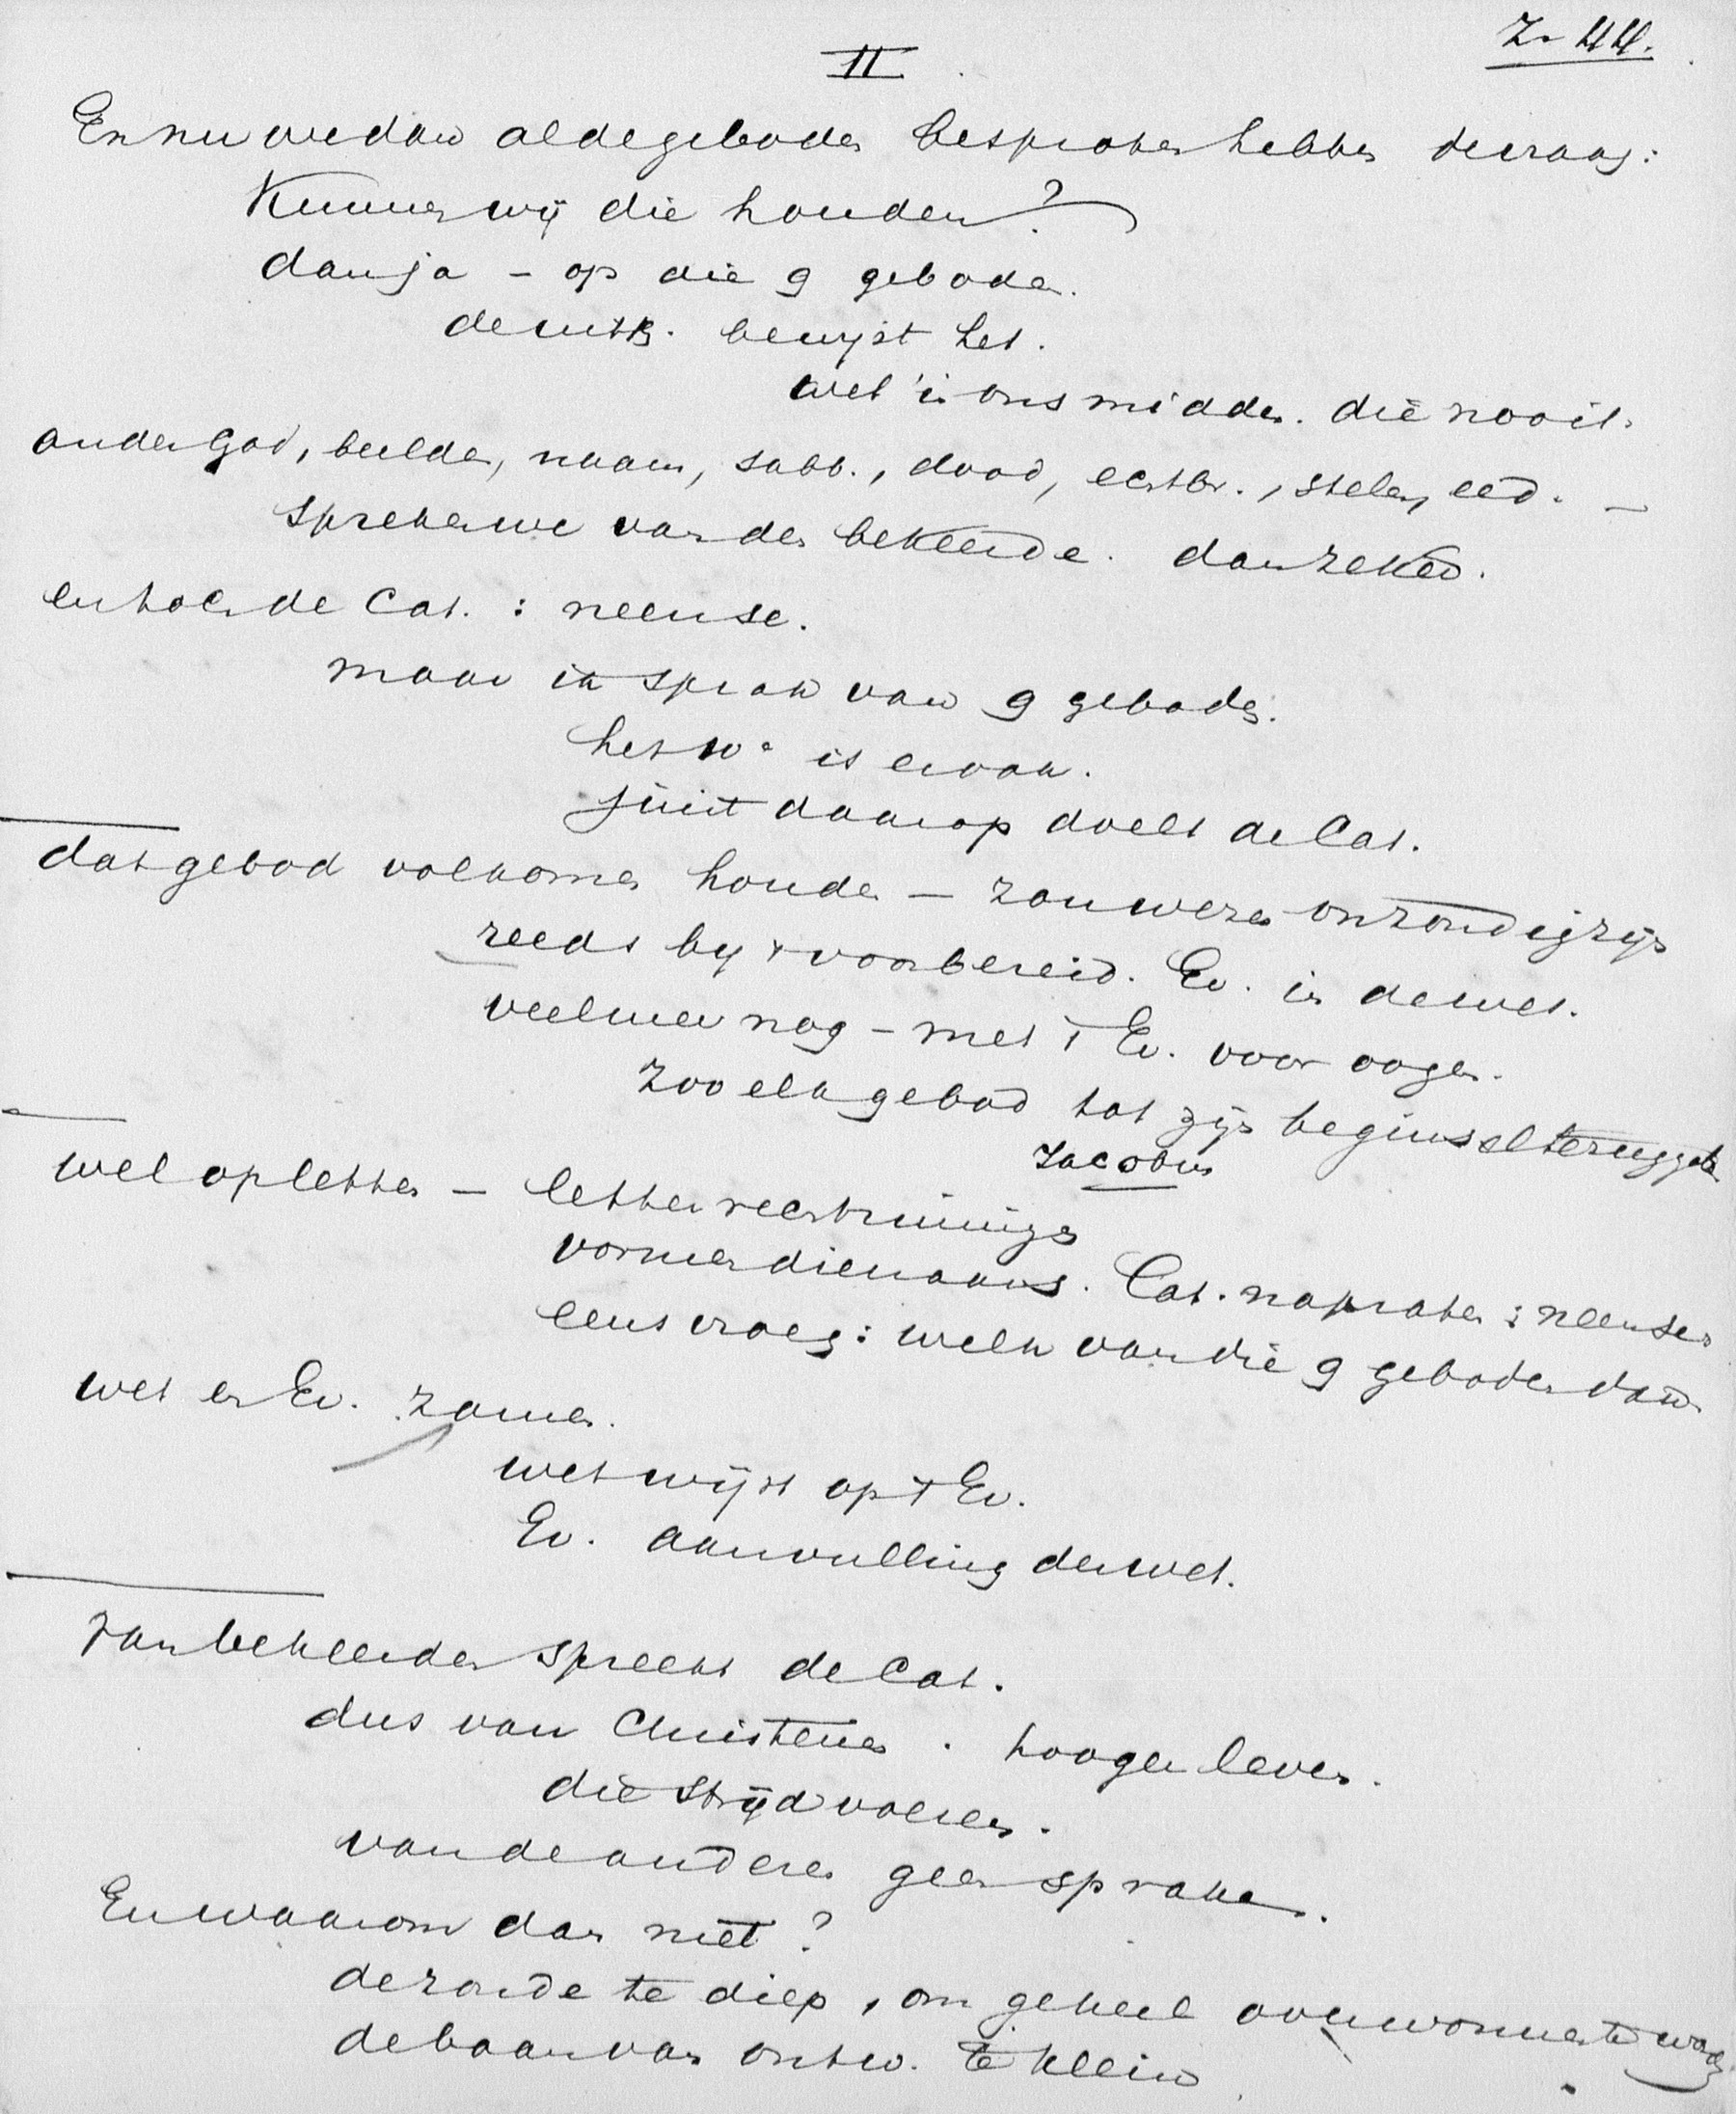 Zo 44.
II
En nu we dan al de geboden besproken hebben de vraag:
Kunnen wij die houden?
dan ja – op die 9 geboden.
de uitk. bewijst het.
wel in ons midden. die nooit.
ander God, beelden, naam, sabb., dood, echtbr., stelen, eed. –
spreken we van den bekeerde. dan zeker.
en toch de Cat. : neen se.
maar ik sprak van 9 geboden.
het 10e is er ook.
juist daarop doelt de Cat.
dat gebod volkomen houden – zou wezen onzondig zijn
reeds by voorbereid. Ev. in de wet.
veelmeer nog – met 't Ev. voor oogen.
zoo elk gebod tot zijn beginsel terugge
Jacobus
wel opletten – letter
vormendienaars. Cat. napraten : neen se
eens vraag: welk van die 9 geboden dan
wet en Ev. zamen.
wet wijst op 't Ev.
Ev. aanvulling der wet.
Van bekeerden spreekt de Cat.
dus van Christenen . hooger leven.
die strijd voeren.
van de anderen geen sprake.
En waarom dan niet?
de zonde te diep, om geheel overwonnen te worden
de baan van ontw. te klein